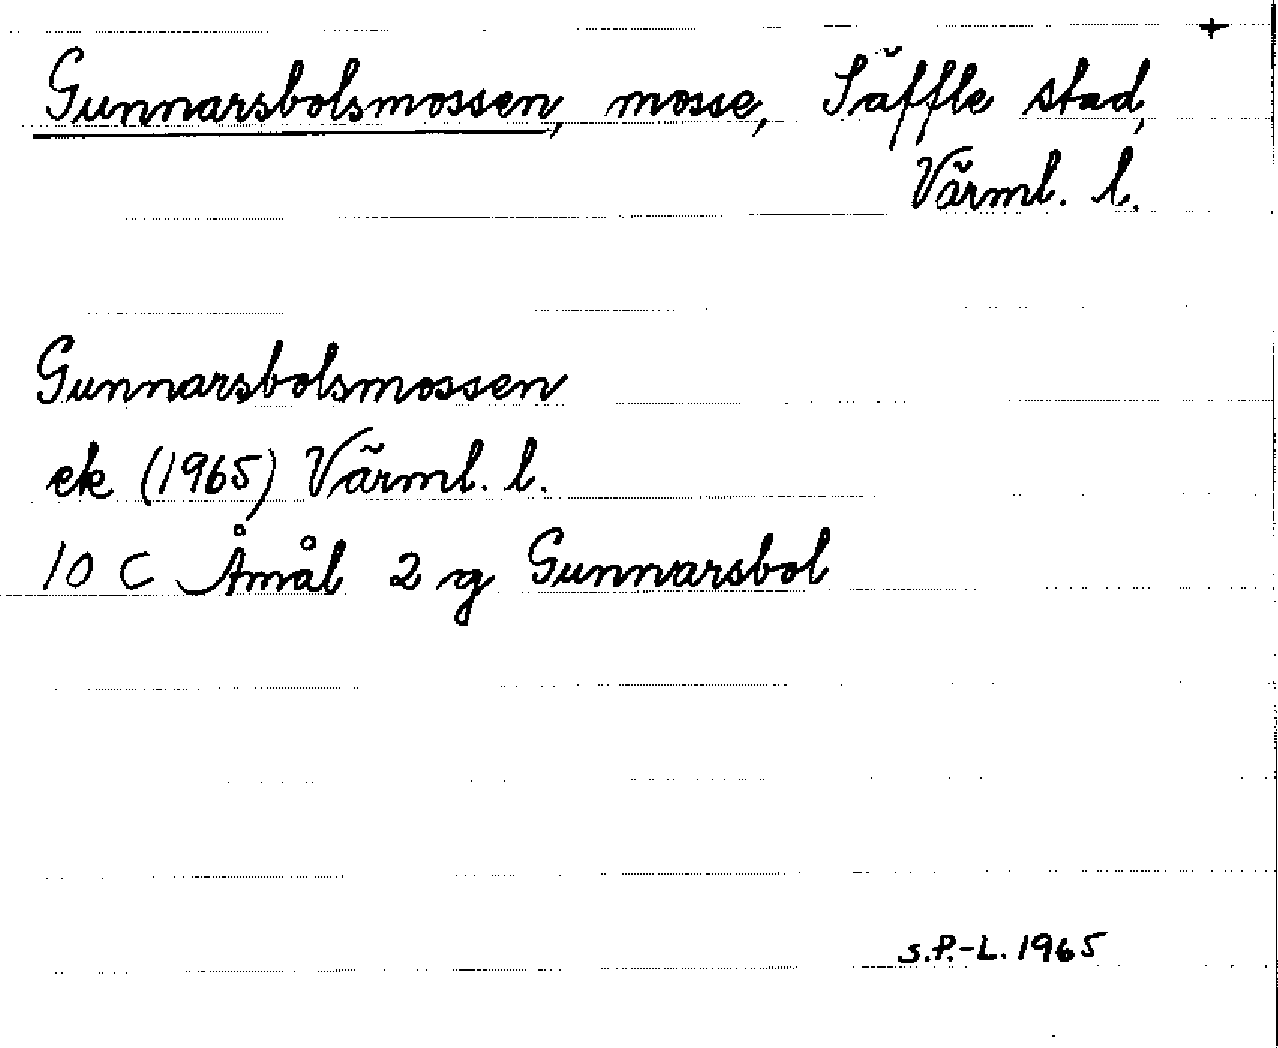 Gunnarsbolsmossen, mosse, Säffle stad,
Värml. l.
Gunnarsbolsmossen
ek (1965) Värml. l.
10 C Åmål 2 g Gunnarsbol
S.P.-L. 1965